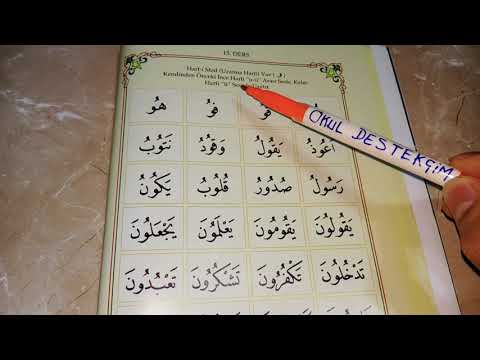 15. DERS
Harf-i Med (Uzatma Harfi) Vav ( و )
Kendinden Önceki İnce Harfi "u-ü" Arası Sesle, Kalın
Harfi "U"
فُو فُ هُو
اَعُوذُ يَقُولُ وَقُودُ نَتُوبُ
رَسُولُ صُدُورُ قُلُوبُ يَكُونُ
يَقُولُونَ يَقُومُونَ يَعْلَمُونَ يَجْعَلُونَ
تَدْخُلُونَ تَكْفُرُونَ تَشْكُرُونَ تَعْبُدُونَ
OKUL DESTEKÇİM